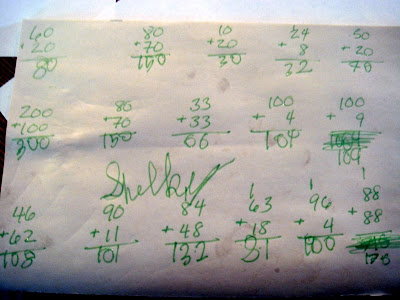 60 80 10 24 50
+20 +70 +20 +8 +20
80 150 30 32 70
200 80 33 100 100
+100 +70 +33 +4 +9
300 150 66 104
109
1 1 1
46 90 84 63 96 88
+62 +11 +48 +18 +4 +88
108 101 132 81 100